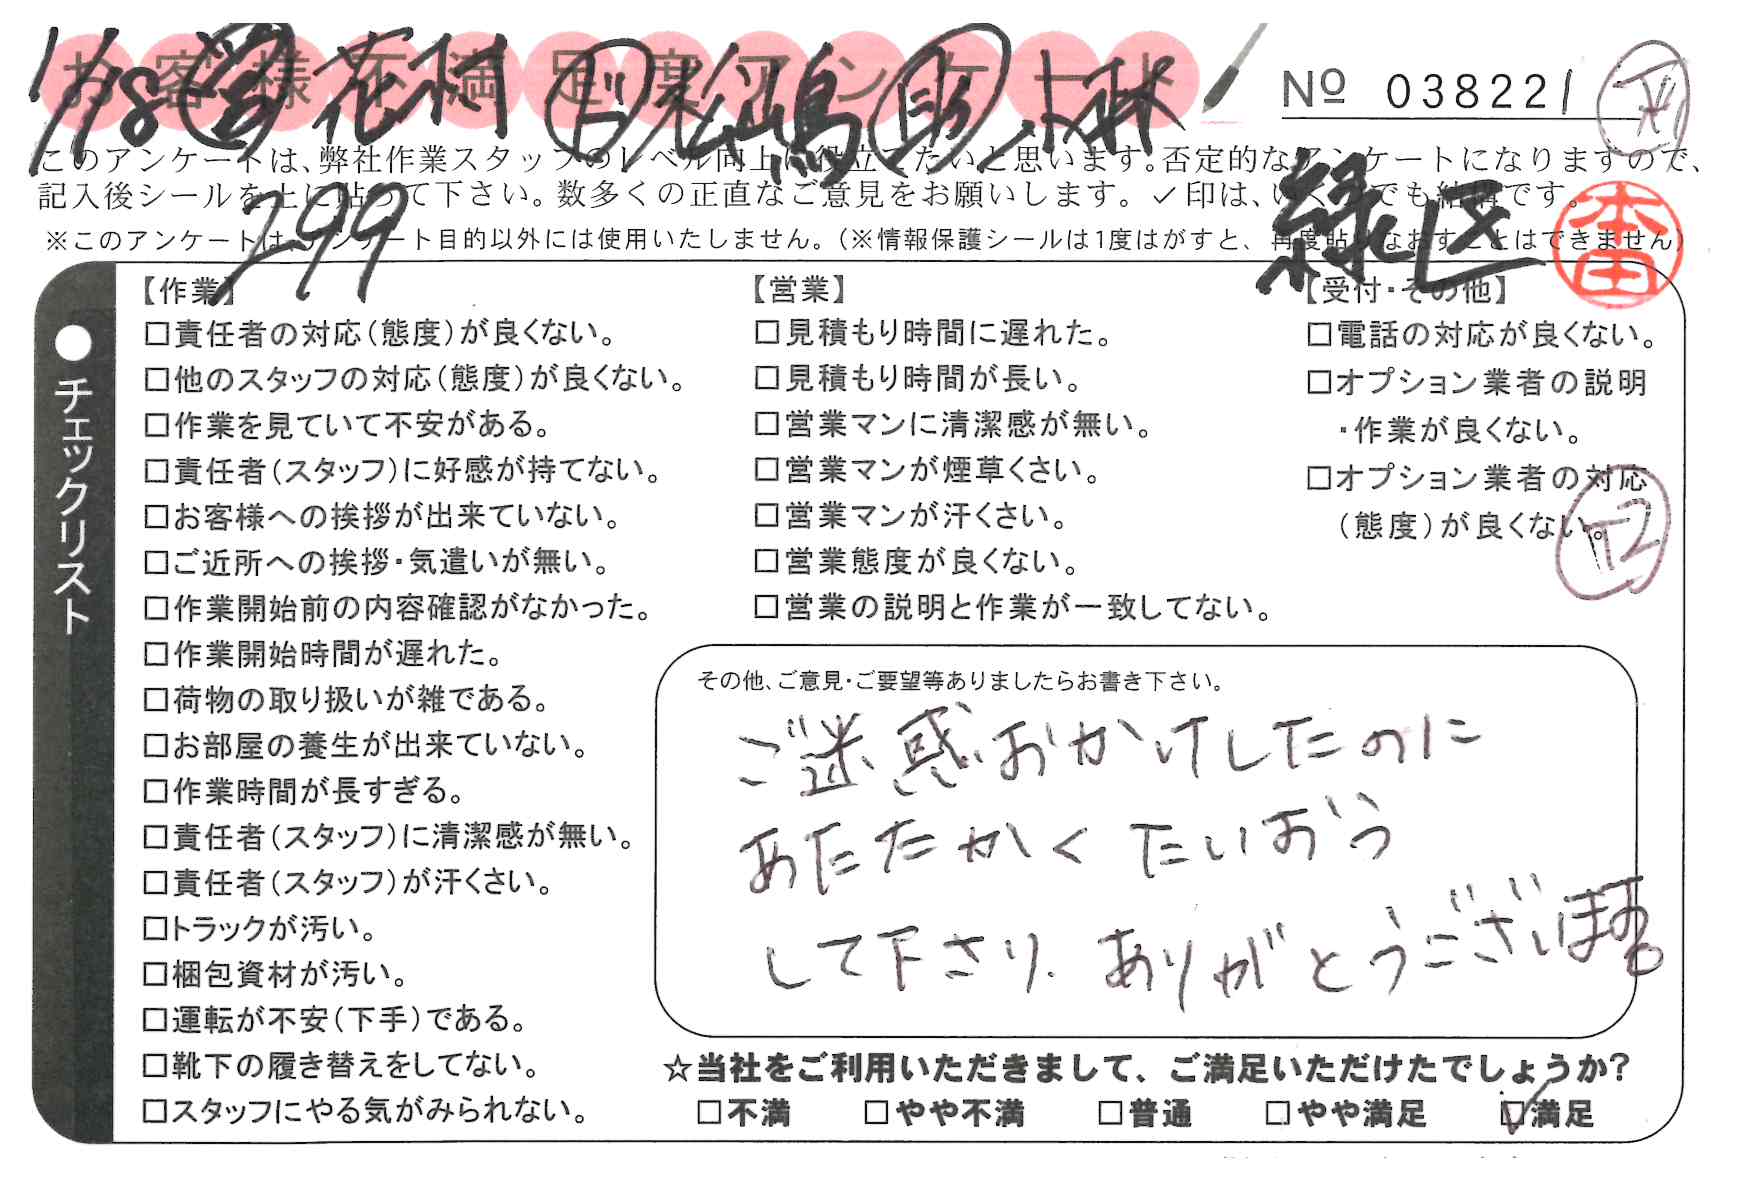 お客様不満足度アンケート
11/18 営 花村 ド 松嶋 助 小林
№ 038221
このアンケートは、弊社作業スタッフのレベル向上に役立てたいと思います。否定的なアンケートになりますので、
記入後シールを上に貼って下さい。数多くの正直なご意見をお願いします。✓印は、いくつでも結構です。
299
緑区
※このアンケートは、アンケート目的以外には使用いたしません。(※情報保護シールは1度はがすと、再度貼りなおすことはできません)
本田
●チェックリスト
【作業】
□責任者の対応(態度)が良くない。
□他のスタッフの対応(態度)が良くない。
□作業を見ていて不安がある。
□責任者(スタッフ)に好感が持てない。
□お客様への挨拶が出来ていない。
□ご近所への挨拶・気遣いが無い。
□作業開始前の内容確認がなかった。
□作業開始時間が遅れた。
□荷物の取り扱いが雑である。
□お部屋の養生が出来ていない。
□作業時間が長すぎる。
□責任者(スタッフ)に清潔感が無い。
□責任者(スタッフ)が汗くさい。
□トラックが汚い。
□梱包資材が汚い。
□運転が不安(下手)である。
□靴下の履き替えをしてない。
□スタッフにやる気がみられない。
【営業】
□見積もり時間に遅れた。
□見積もり時間が長い。
□営業マンに清潔感が無い。
□営業マンが煙草くさい。
□営業マンが汗くさい。
□営業態度が良くない。
□営業の説明と作業が一致してない。
【受付・その他】
□電話の対応が良くない。
□オプション業者の説明
・作業が良くない。
□オプション業者の対応
(態度)が良くない。
T2
その他、ご意見・ご要望等ありましたらお書き下さい。
ご迷惑おかけしたのに
あたたかくたいおう
して下さり、ありがとうございます。
☆当社をご利用いただきまして、ご満足いただけたでしょうか?
□不満 □やや不満 □普通 □やや満足 ☑満足